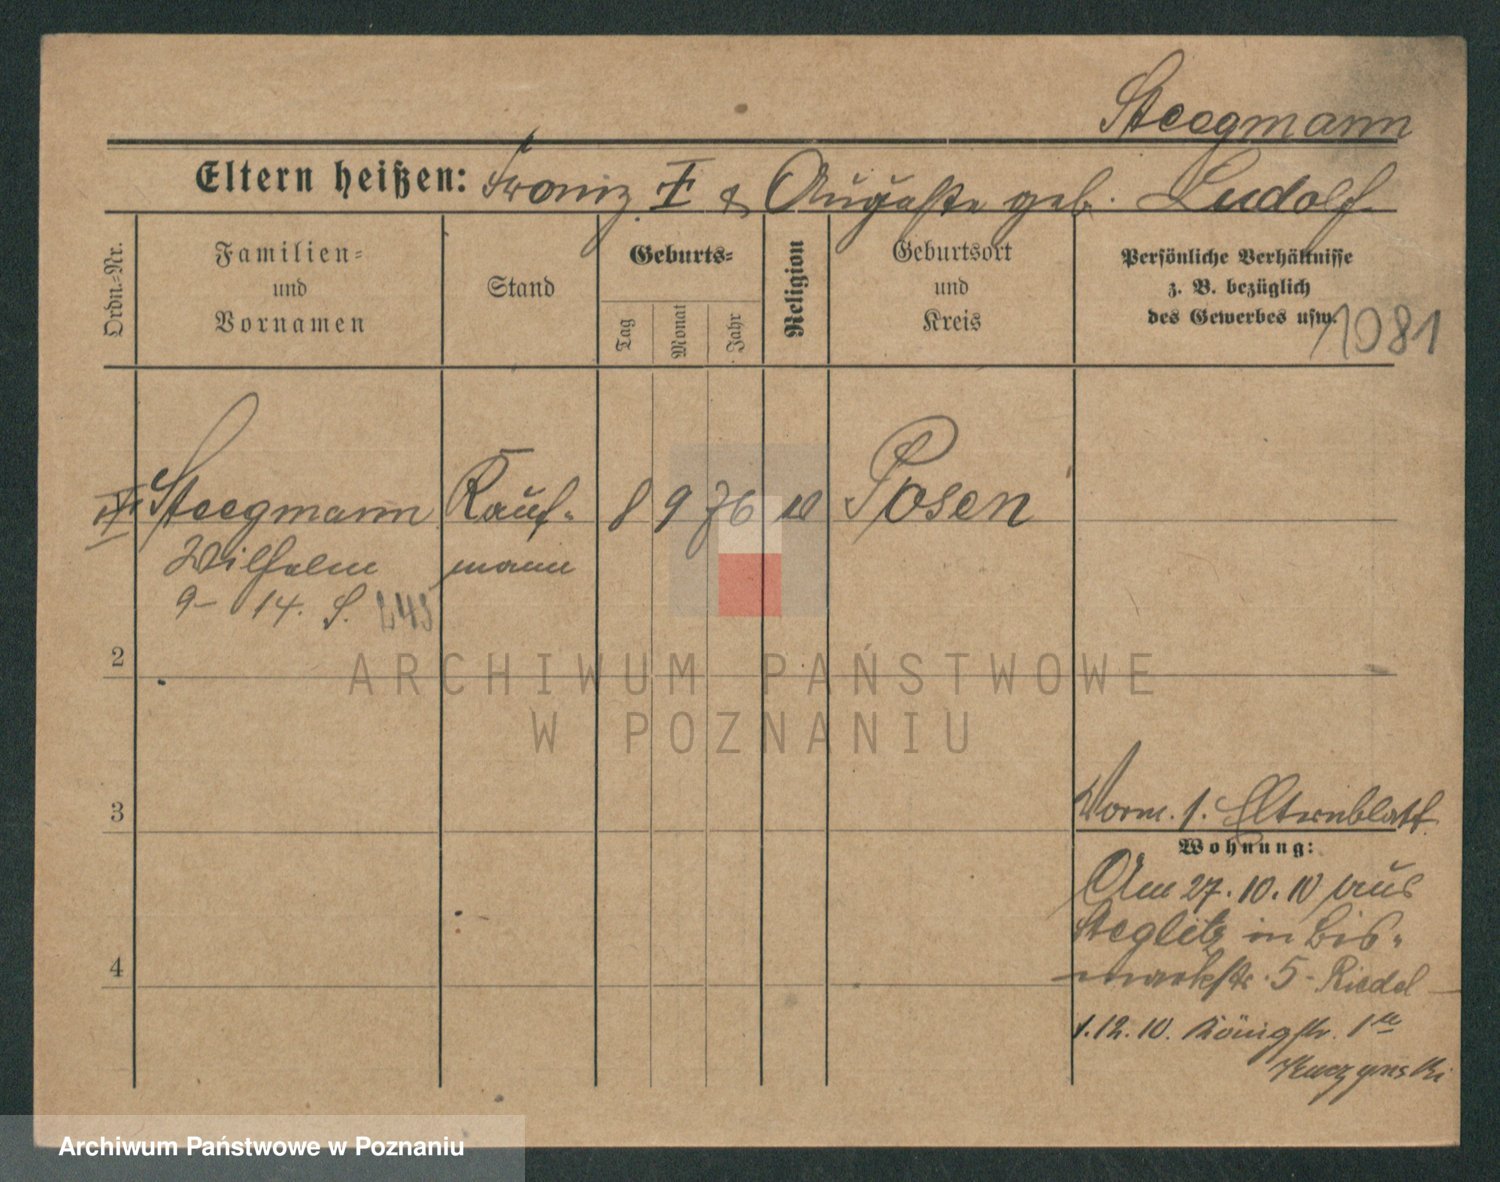 Steegmann
Eltern heißen: Franz I & Auguste geb. Ludolf
Ordn.-Nr.
Familien-
und
Vornamen
Stand
Geburts-
Tag
Monat
Jahr
Religion
Geburtsort
und
Kreis
Persönliche Verhältnisse
z. B. bezüglich
des Gewerbes usw.
1081
Steegmann Kauf- 8 9 76 Posen
Wilhelm mann
9 - 14. S.
2
ARCHIWUM PAŃSTWOWE
W POZNANIU
3
Vorm. 1. Elternblatt
Wohnung:
Am 27.10.10 aus
Steglitz in Bis-
4
marckstr. 5 - Riedel
1.12.10. Königstr. 1a
Archiwum Państwowe w Poznaniu